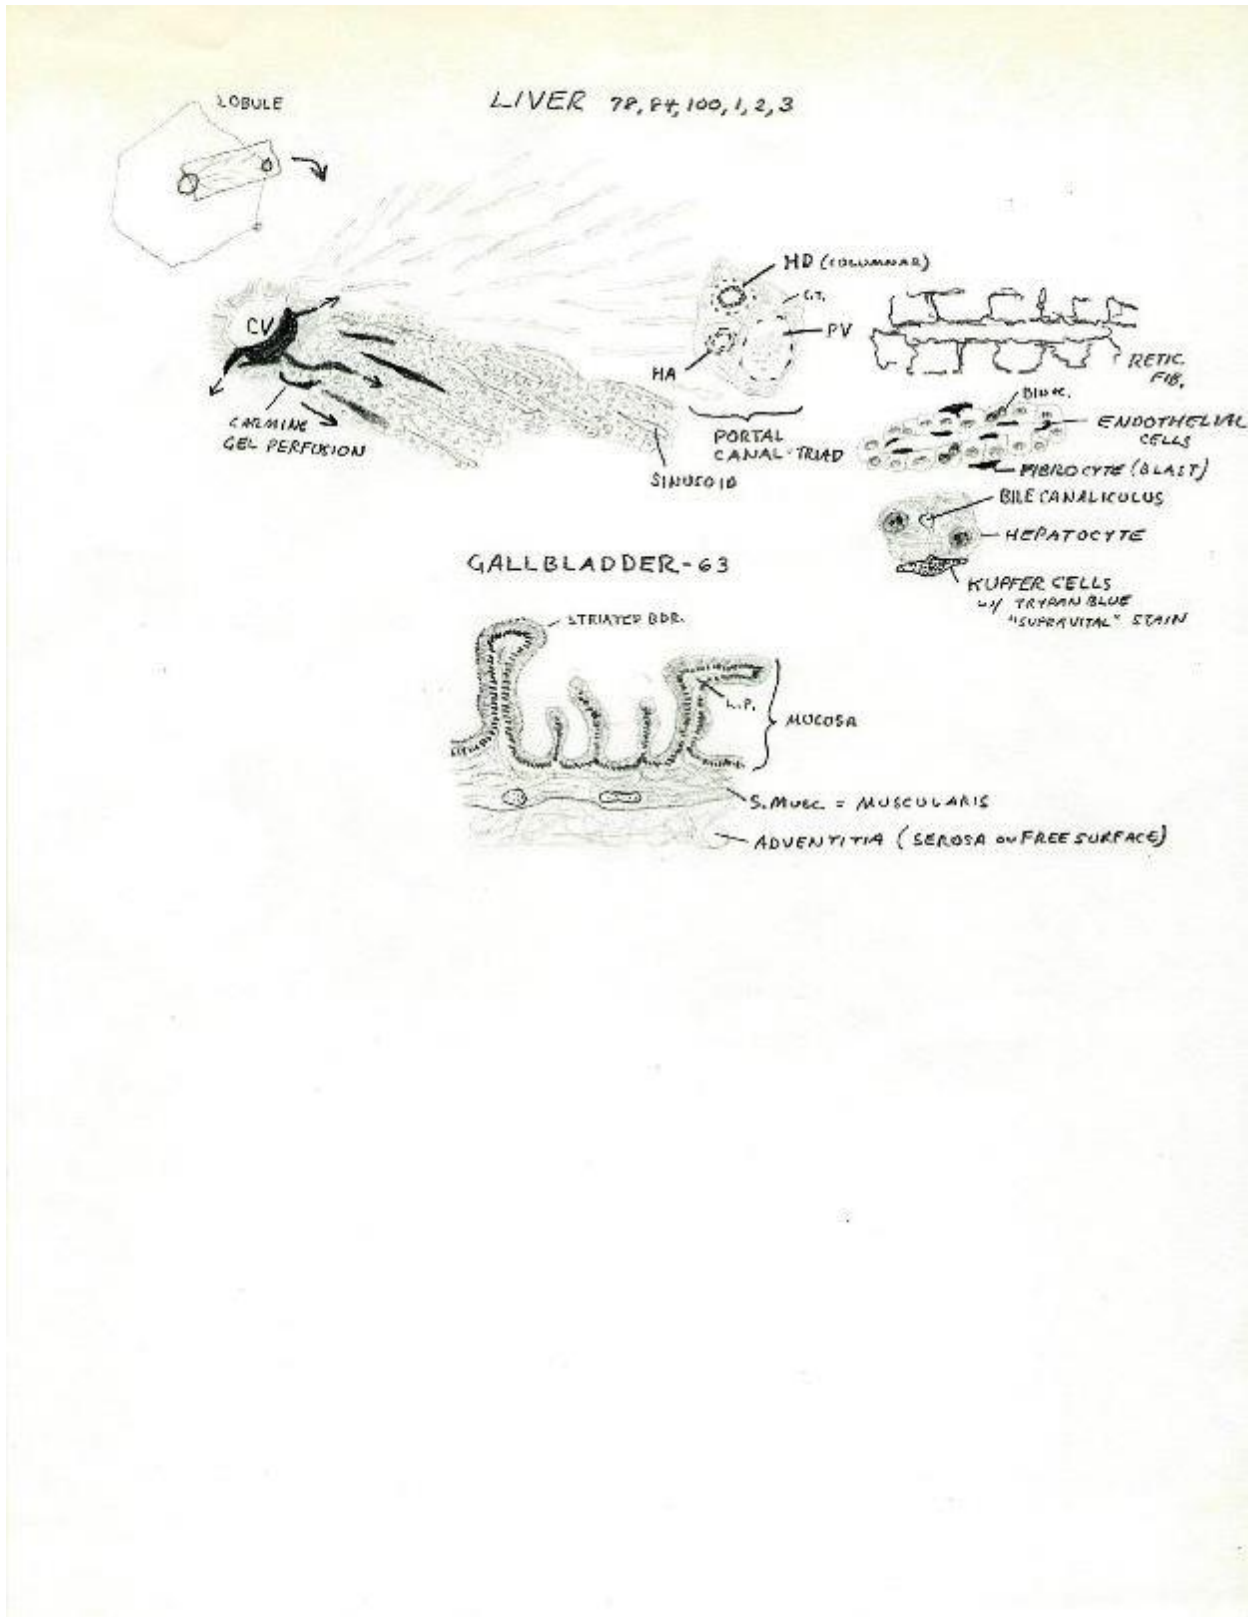 LOBULE
LIVER 78, 84, 100, 1, 2, 3
HD (COLUMNAR)
C.T.
PV
HA
CV
CARMINE
GEL PERFUSION
PORTAL
CANAL-TRIAD
SINUSOID
RETIC.
FIB.
BINUC.
ENDOTHELIAL
CELLS
FIBROCYTE (BLAST)
BILE CANALICULUS
HEPATOCYTE
KUPFER CELLS
W/ TRYPAN BLUE
"SUPRAVITAL" STAIN
GALLBLADDER-63
STRIATED BDR.
L.P.
MUCOSA
S. MUSC. = MUSCULARIS
ADVENTITIA (SEROSA ON FREE SURFACE)